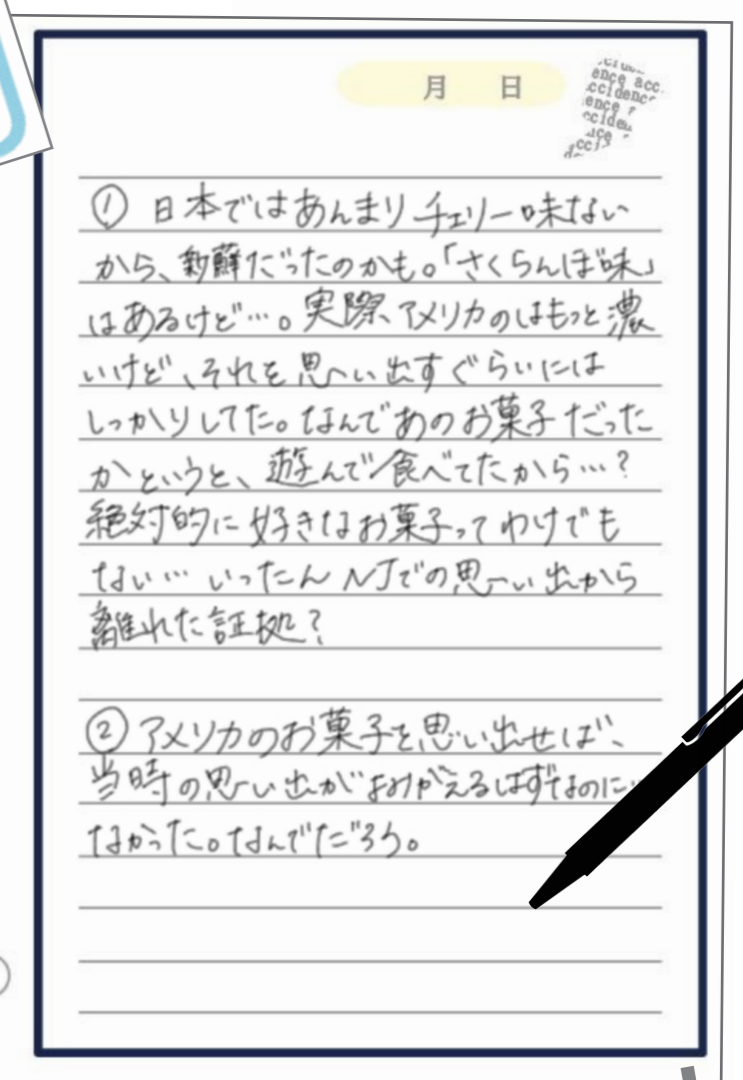 月 日
① 日本ではあんまりチェリー味ない
から、新鮮だったのかも。「さくらんぼ味」
はあるけど…。実際アメリカのはもっと濃
いけど、それを思い出すぐらいには
しっかりしてた。なんであのお菓子だった
かというと、遊んで食べてたから…?
絶対的に好きなお菓子ってわけでも
ない… いったん NJでの思い出から
離れた証拠?
② アメリカのお菓子を思い出せば、
当時の思い出がよみがえるはずなのに…
なかった。なんでだろう。